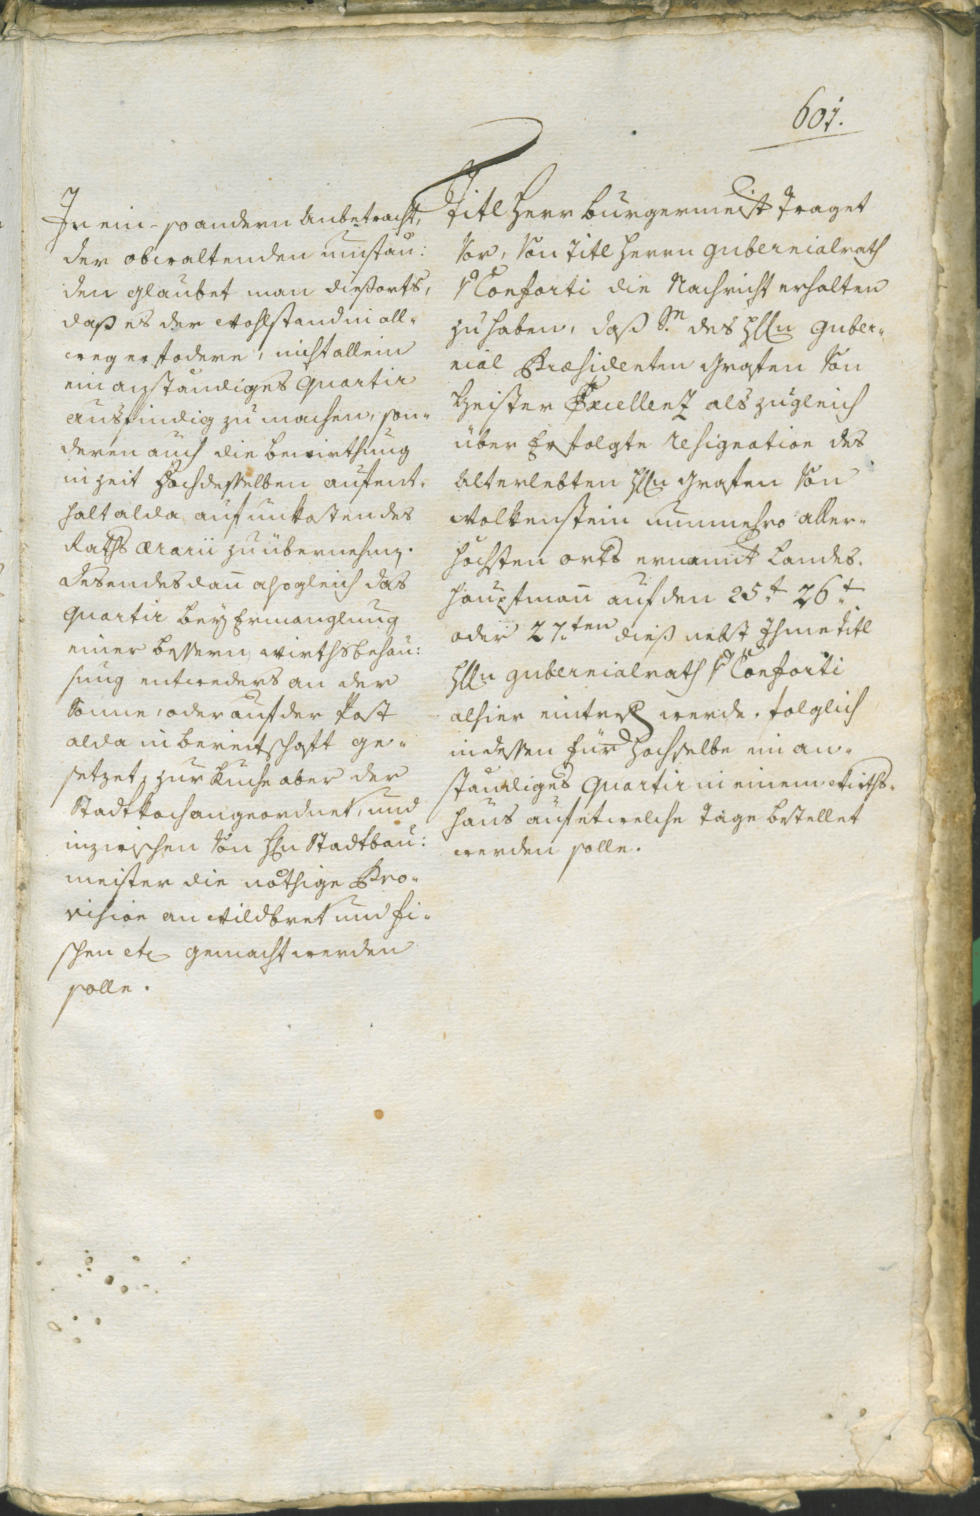 601.
In ein- so andern Anbetracht,
der obwaltenden umstän:
den glaubet man diesorts,
daß es der Wohlstand in all-
weg erfodere, nicht allein
ein anständiges Quartir
ausfindig zu machen, son-
deren auch die bewirthung
in zeit Hochdesselben aufent-
halt alda auf unkosten des
Raths ærarii zu übernehmen.
Desendes dan also gleich das
Quartir bey Ermanglung
einer bessern wirthsbehau:
sung entweders an der
Sonne, oder auf der Post
alda in bereitschaft ge-
setzet, zur Kuche aber der
Stadtkoch angeordnet, und
inzwischen von Hln Stadtbau:
meister die nöthige Pro-
vision an Wildbret und fi-
schen etc gemacht werden
solle.
Titl Herr burgermeister Traget
vor, von Titl Herrn gubernialrath
v Conforti die Nachricht erhalten
zu haben, daß Sr. des Hlln guber-
nial Præsidenten Grafen von
Heister Excellenz als zugleich
über Erfolgte resignation des
alterlebten Hlln Grafen von
Wolkenstein nunmehro aller-
höchsten orts ernannt Landes-
hauptman auf den 25t 26t
oder 27ten dieß nebst Ihme titl
Hlln gubernialrath v Conforti
alhier eintreffen werde. folglich
indessen für Hochselbe ein an-
ständiges Quartir in einem Wirths-
haus auf etwelche Täge bestellet
werden solle.